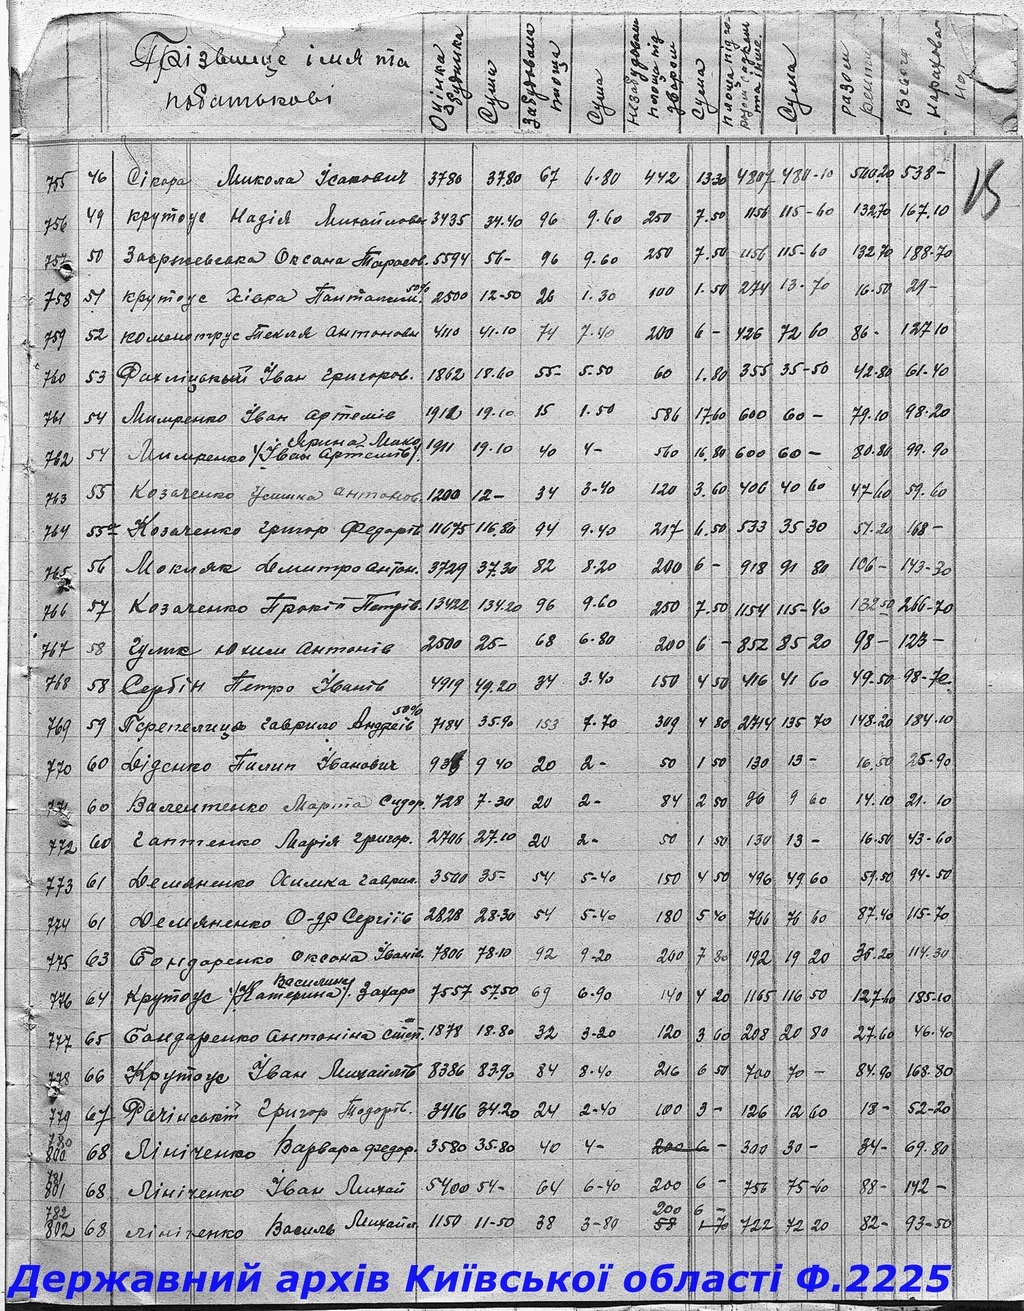 Прізвище імя та податькові Оцінка будинка Сума Забудована площа Сума незабудована площа під двором Сума площа під городом садком та інше. Сума разом ренти Всього нарахована
15
755 46 Сікора Микола Ісакович 3780 37.80 67 6.80 442 13.30 4801 480-10 500.20 538-
756 49 Крутоус Надія Михайловн 3435 34.40 96 9.60 250 7.50 1156 115-60 132.70 167.10
757 50 Оксана Тарасов. 5594 56- 96 9.60 250 7.50 1156 115-60 132.70 188-70
758 51 Крутоус Хівря 50% 2500 12-50 26 1.30 100 1.50 274 13-70 16.50 29-
759 52 Текля Антоновн 4110 41.10 74 7.40 200 6- 426 72 60 86- 127.10
760 53 Іван Григоров. 1862 18.60 55- 5.50 60 1.80 355 35-50 42-80 61-40
761 54 Мимренко Іван Артемів 1912 19.10 15 1.50 586 17.60 600 60- 79.10 98-20
762 54 Мимренко /Іван Артемів/ Ярина Мико 1911 19.10 40 4- 560 16.80 600 60- 80.80 99.90
763 55 Козаченко Антонов. 1200 12- 34 3-40 120 3.60 406 40 60 47 60 59.60
764 55а Козаченко Григор Федорів 11675 116.80 94 9.40 217 6.50 533 35 30 51-20 168-
765 56 Мокляк Дмитро Антон. 3729 37.30 82 8.20 200 6- 918 91 80 106- 143-30
766 57 Козаченко Прокіп Петрів. 13422 134.20 96 9.60 250 7.50 1154 115-40 132 50 266-70
767 58 Юхим Антонів 2500 25- 68 6.80 200 6- 852 85 20 98- 123-
768 58 Сербін Петро Іванів 4919 49.20 34 3.40 150 4 50 416 41 60 49-50 98-70
769 59 Перепелиця Гаврило Андреїв 50% 7184 35.90 153 7.70 309 4 80 2714 135 70 148.20 184.10
770 60 Діденко Пилип Іванович 938 9 40 20 2- 50 1 50 130 13- 16.50 25-90
771 60 Валентенко Марта Сидор. 728 7-30 20 2- 84 2 50 96 9 60 14.10 21.10
772 60 Гаптенко Марія Григор. 2706 27.10 20 2- 50 1 50 130 13- 16-50 43-60
773 61 Демяненко Химка Гаврил. 3500 35- 54 5-40 150 4 50 496 49 60 59.50 94-50
774 61 Демяненко О-др Сергіїв 2828 28-30 54 5-40 180 5 40 766 76 60 87.40 115-70
775 63 Бондаренко Оксана Іванів. 7806 78.10 92 9-20 260 7 80 192 19 20 36.20 114.30
776 64 Крутоус /Катерина/ Василина Захаро 7557 57.50 69 6-90 140 4 20 1165 116 50 127 60 185-10
777 65 Бондаренко Антоніна Степ. 1878 18.80 32 3-20 120 3 60 208 20 80 27.60 46-40
778 66 Крутоус Іван Михайлів 8386 83.90 84 8-40 216 6 50 700 70- 84.90 168.80
779 67 Рачінський Григор Тодорів. 3416 34.20 24 2-40 100 3- 126 12 60 18- 52-20
780 800 68 Лініченко Варвара Федор. 3580 35.80 40 4- 200 6- 300 30- 34- 69.80
781 801 68 Лініченко Іван Михай 5400 54- 64 6-40 200 6- 756 75-60 88- 142-
782 802 68 Лініченко Василь Михайл. 1150 11-50 38 3-80 200 58 6- 1-70 722 72 20 82- 93-50
Державний архів Київської області Ф.2225